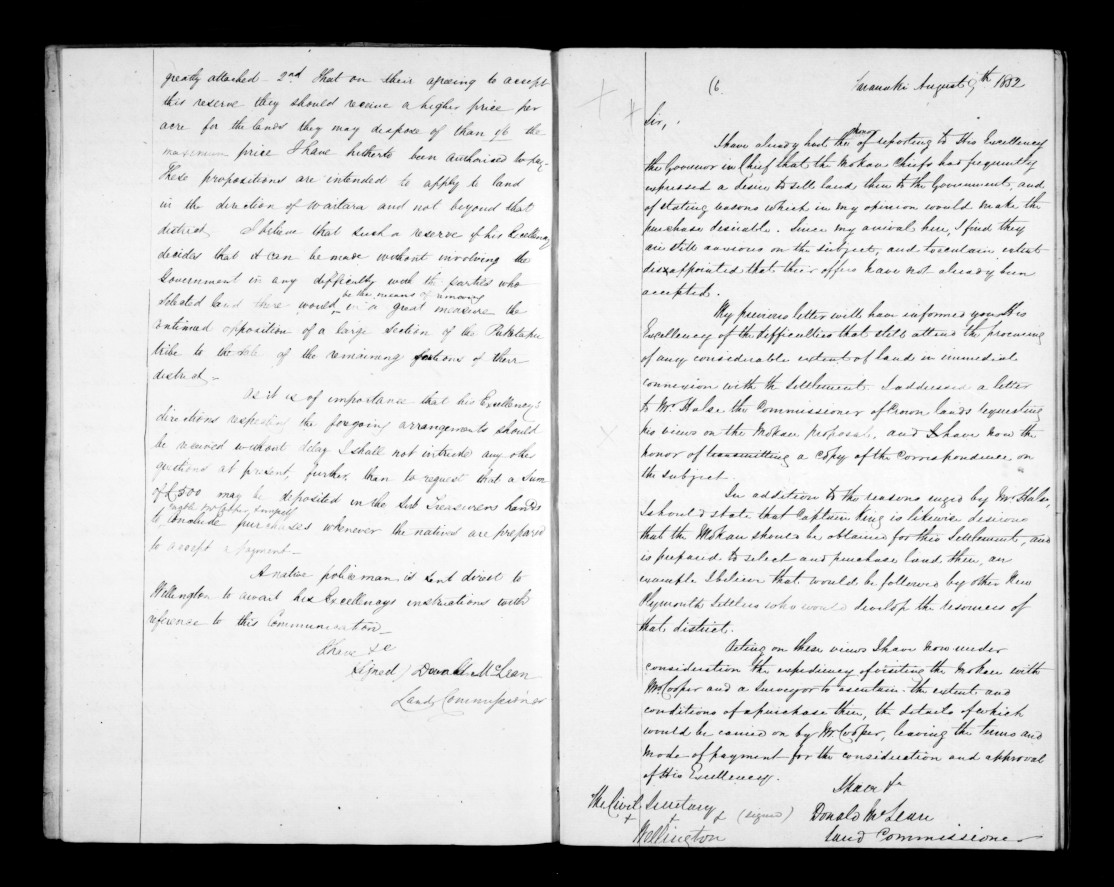 greatly attached 2nd That on their agreeing to accept
this reserve they should receive a higher price per
acre for the lands they may dispose of than the
maximum price I have hitherto been authorised to pay -
These propositions are intended to apply to land
in the direction of Waitara and not beyond that
district. I believe that such a reserve if his Excellency
decides that it can be made without involving the
Government in any difficulty with the parties who
selected land there would be the means of removing in a great measure the
continued opposition of a large section of the Puketapu
tribe to the sale of the remaining portions of their
district -
As it is of importance that his Excellency's
directions respecting the foregoing arrangements should
be received without delay I shall not intrude any other
questions at present, further, than to request that a Sum
of £500 may be deposited in the Sub Treasurers hands
to enable Mr Cooper & myself
to conclude purchases whenever the natives are prepared
to accept payment -
A native policeman is sent direct to
Wellington to await his Excellencys instructions with
reference to this Communication -
I have &c
Signed) Donald McLean
Land Commissioner
(6. Taranaki August 9th 1852
Sir,
I have already had the honor of reporting to His Excellency
the Governor in Chief that the Mokau Chiefs had frequently
expressed a desire to sell land there to the Government, and
of stating reasons which in my opinion would make the
purchase desirable. Since my arrival here, I find they
are still anxious on the subject, and to a certain extent
dissappointed that their offers have not already been
accepted.
My previous letter will have informed you His
Excellency of the difficulties that still attend the procuring
of any considerable extent of land in immediate
connexion with the Settlement. I addressed a letter
to Mr. Halse the Commissioner of Crown lands requesting
his views on the Mokau proposal, and I have now the
honor of transmitting a copy of the Correspondence on
the subject.
In addition to the reasons urged by Mr Halse,
I should state that Captain King is likewise desirous
that the Mokau should be obtained for this Settlement, and
is prepared to select and purchase land there, an
example I believe that would be followed by other New
Plymouth Settlers who would develop the resources of
that district.
Acting on these views I have now under
consideration the expediency of visiting the Mokau with
Mr. Cooper and a Surveyor to ascertain the extent and
conditions of a purchase there, the details of which
would be carried on by Mr Cooper, leaving the terms and
mode of payment for the consideration and approval
of His Excellency.
I have &c
The Civil Secretary (signed) Donald McLean
Wellington Land Commissioner